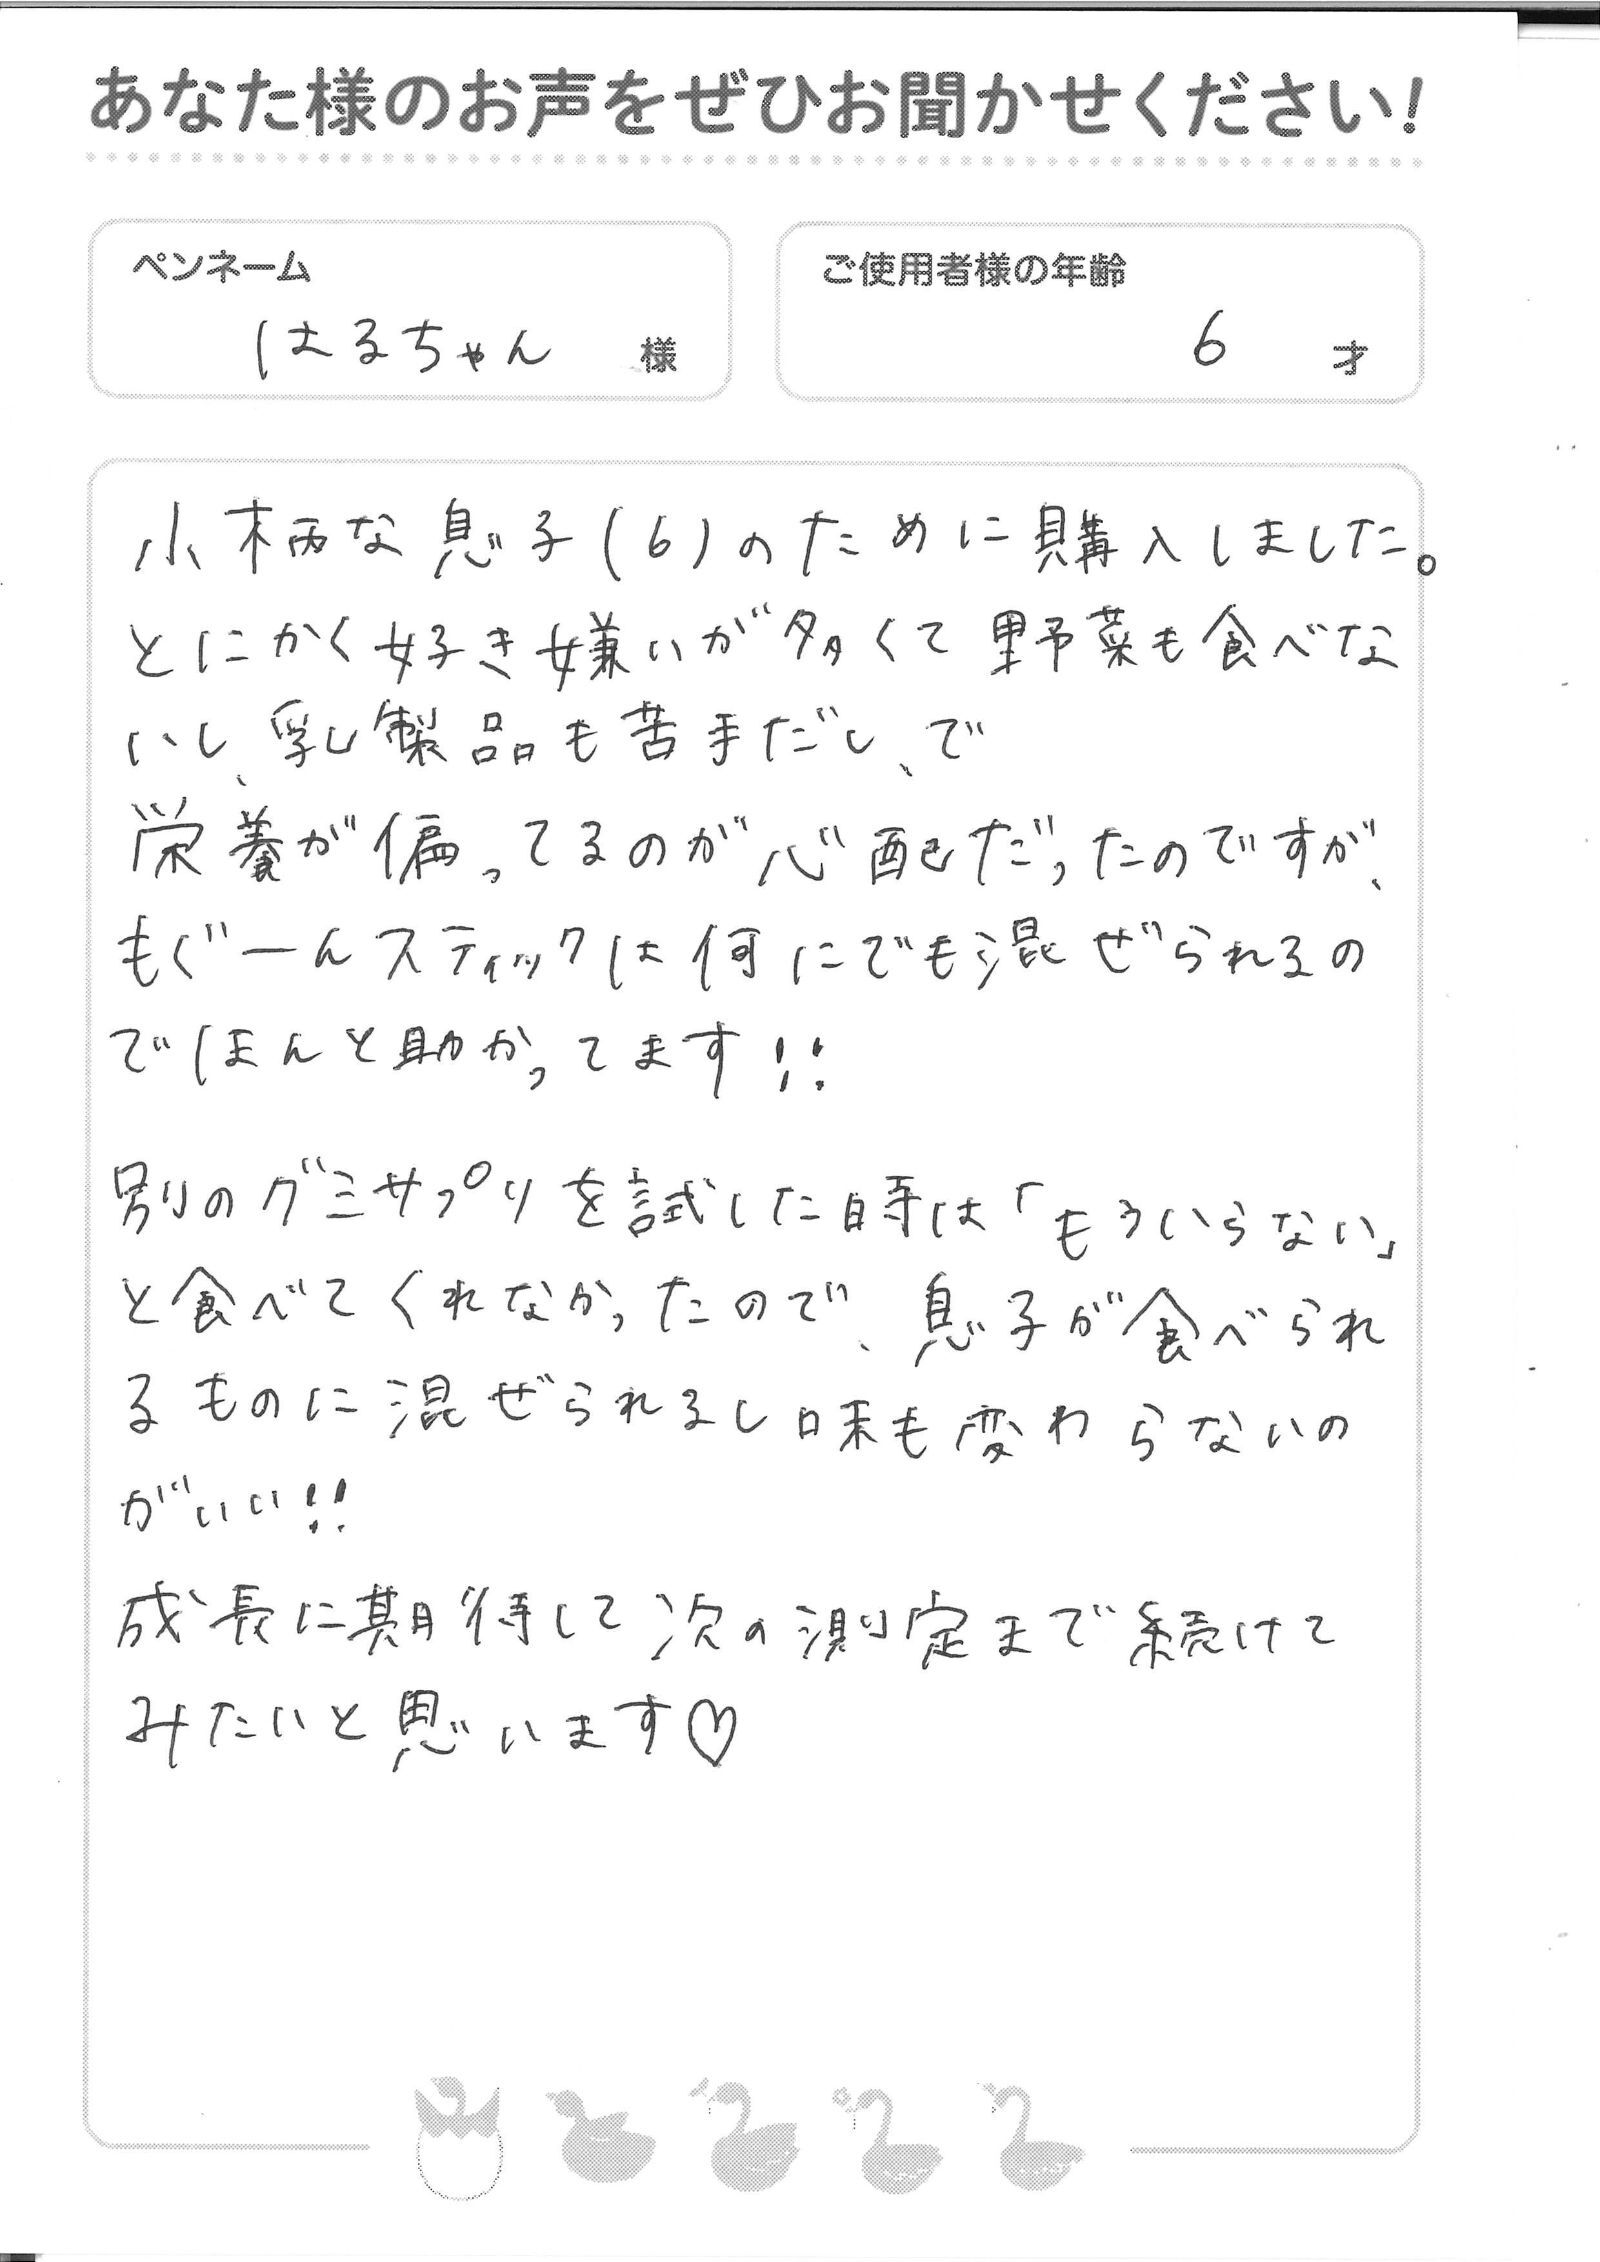 あなた様のお声をぜひお聞かせください!
ペンネーム
はるちゃん 様
ご使用者様の年齢
6 才
小柄な息子(6)のために購入しました。
とにかく好き嫌いが多くて野菜も食べな
いし、乳製品も苦手だし、で
栄養が偏ってるのが心配だったのですが、
もぐーんスティックは何にでも混ぜられるの
でほんと助かってます!!
別のグミサプリを試した時は「もういらない」
と食べてくれなかったので、息子が食べられ
るものに混ぜられるし味も変わらないの
がいい!!
成長に期待して次の測定まで続けて
みたいと思います♡